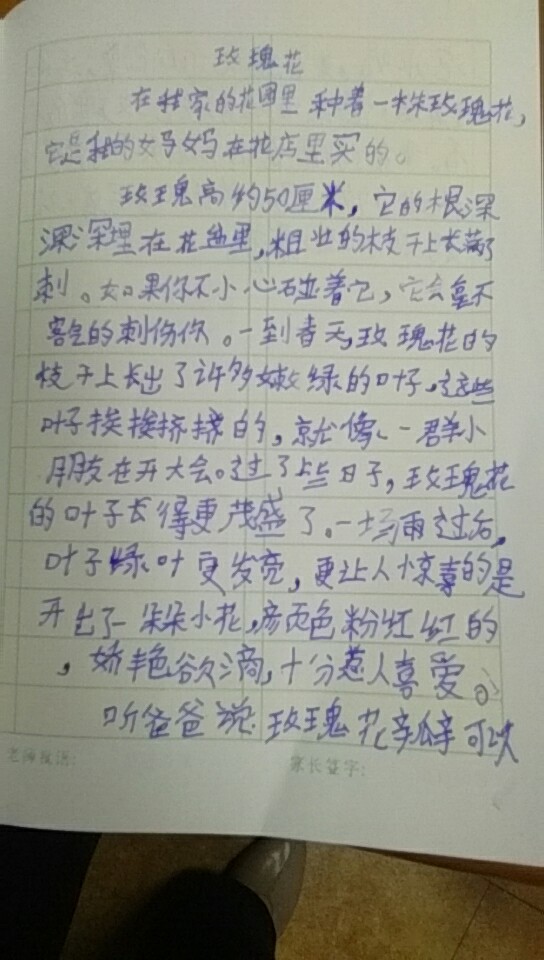 玫瑰花
在我家的花园里种着一株玫瑰花,
它是我的妈妈在花店里买的。
玫瑰高约50厘米,它的根深
深深埋在花盆里,粗壮的枝干上长满了
刺。如果你不小心碰着它,它会毫不
客气的刺伤你。一到春天,玫瑰花的
枝干上长出了许多嫩绿的叶子,这些
叶子挨挨挤挤的,就像、一群小
朋友在开大会。过了些日子,玫瑰花
的叶子长得更茂盛了。一场雨过后,
叶子绿叶更发亮,更让人惊喜的是
开出了一朵朵小花,颜色粉红红的
,娇艳欲滴,十分惹人喜爱。
听爸爸说玫瑰花瓣可以
老师批语:
家长签字: